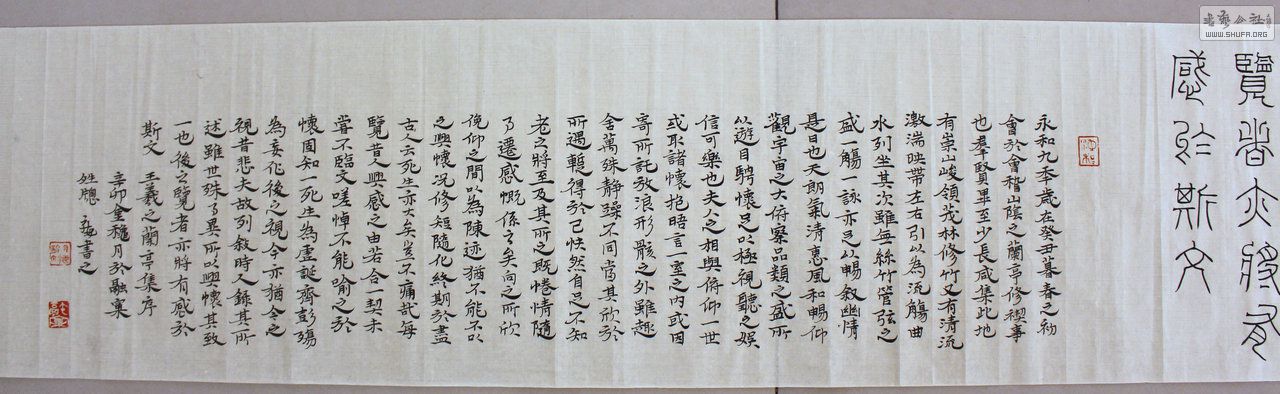 覽者亦將有
感於斯文
永和九秊歲在癸丑暮春之初
會於會稽山陰之蘭亭修禊事
也羣賢畢至少長咸集此地
有崇山峻領茂林修竹又有清流
激湍映帶左右引以為流觴曲
水列坐其次雖無絲竹管弦之
盛一觴一詠亦足以暢敘幽情
是日也天朗氣清惠風和暢仰
觀宇宙之大俯察品類之盛所
以遊目騁懷足以極視聽之娛
信可樂也夫人之相與俯仰一世
或取諸懷抱晤言一室之內或因
寄所託放浪形骸之外雖趣
舍萬殊靜躁不同當其欣於
所遇蹔得於己怏然自足不知
老之將至及其所之既惓情隨
事遷感慨係之矣向之所欣
俛仰之間以為陳迹猶不能不以
之興懷況修短隨化終期於盡
古人云死生亦大矣豈不痛哉每
覽昔人興感之由若合一契未
嘗不臨文嗟悼不能喻之於
懷固知一死生為虛誕齊彭殤
為妄作後之視今亦猶今之
視昔悲夫故列敘時人錄其所
述雖世殊事異所以興懷其致
一也後之覽者亦將有感於
斯文 王羲之蘭亭集序
辛卯金穐月於融寓
書之
書法公社
WWW.SHUFA.ORG